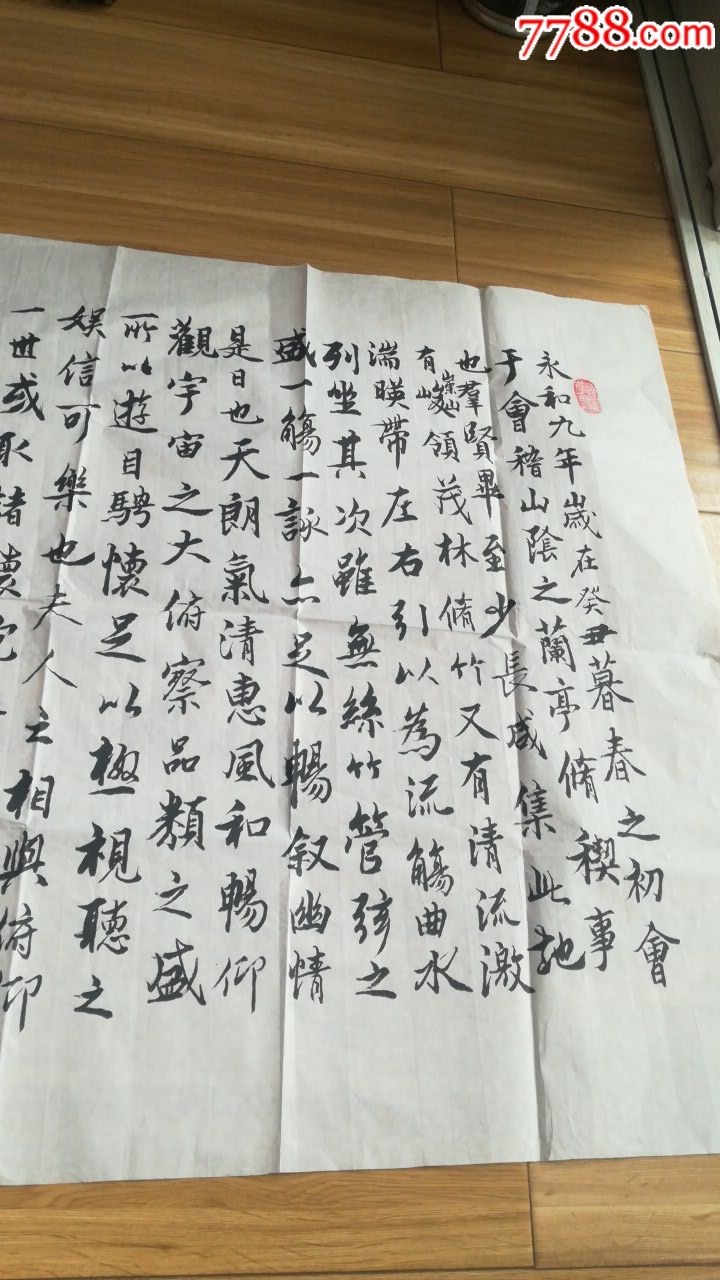 7788.com
中国收藏热线
永和九年歲在癸丑暮春之初會
于會稽山陰之蘭亭脩稧事
也羣賢畢至少長咸集此地
有崇山峻領茂林脩竹又有清流激
湍暎帶左右引以為流觴曲水
列坐其次雖無絲竹管弦之
盛一觴一詠亦足以暢叙幽情
是日也天朗氣清惠風和暢仰
觀宇宙之大俯察品類之盛
所以遊目騁懷足以極視聽之
娱信可樂也夫人之相與俯仰
一世或取諸懷